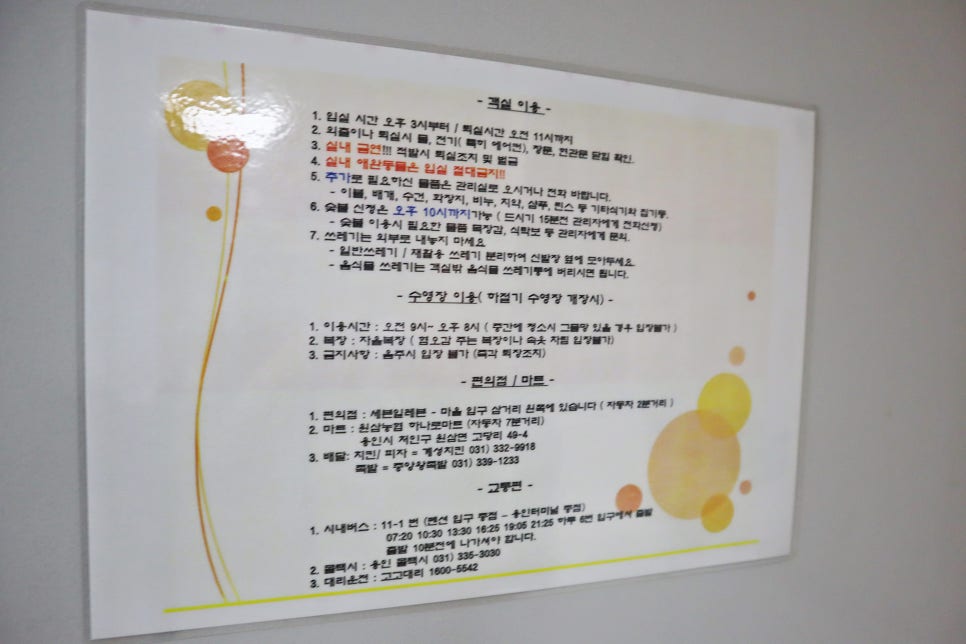 - 객실 이용 -
1. 입실 시간 오후 3시부터 / 퇴실시간 오전 11시까지
2. 외출이나 퇴실시 물, 전기( 특히 에어컨), 창문, 현관문 닫힘 확인.
3. 실내 금연!!! 적발시 퇴실조치 및 벌금
4. 실내 애완동물은 입실 절대금지!!
5. 추가로 필요하신 물품은 관리실로 오시거나 전화 바랍니다.
- 이불, 배개, 수건, 화장지, 비누, 치약, 샴푸, 린스 등 기타식기와 집기등.
6. 숯불 신청은 오후 10시까지가능 ( 드시기 15분전 관리자에게 전화신청)
- 숯불 이용시 필요한 물품 목장갑, 식탁보 등 관리자에게 문의.
7. 쓰레기는 외부로 내놓지 마세요
- 일반쓰레기 / 재활용 쓰레기 분리하여 신발장 옆에 모아두세요.
- 음식물 쓰레기는 객실밖 음식물 쓰레기통에 버리시면 됩니다.
- 수영장 이용( 하절기 수영장 개장시) -
1. 이용시간 : 오전 9시~ 오후 8시 ( 중간에 청소시 그물망 있을 경우 입장불가 )
2. 복장 : 자율복장 ( 혐오감 주는 복장이나 속옷 차림 입장불가)
3. 금지사항 : 음주시 입장 불가 (즉각 퇴장조치)
- 편의점 / 마트 -
1. 편의점 : 세븐일레븐 - 마을 입구 삼거리 왼쪽에 있습니다 ( 자동차 2분거리 )
2. 마트 : 원삼농협 하나로마트 (자동차 7분거리)
용인시 처인구 원삼면 고당리 49-4
3. 배달: 치킨/ 피자 = 계성치킨 031) 332-9918
족발 = 중앙왕족발 031) 339-1233
- 교통편 -
1. 시내버스 : 11-1 번 (펜션 입구 종점 – 용인터미널 종점)
07:20 10:30 13:30 16:25 19:05 21:25 하루 6번 입구에서 출발
출발 10분전에 나가셔야 합니다.
2. 콜택시 : 용인 콜택시 031) 335-3030
3. 대리운전 : 고고대리 1600-5542